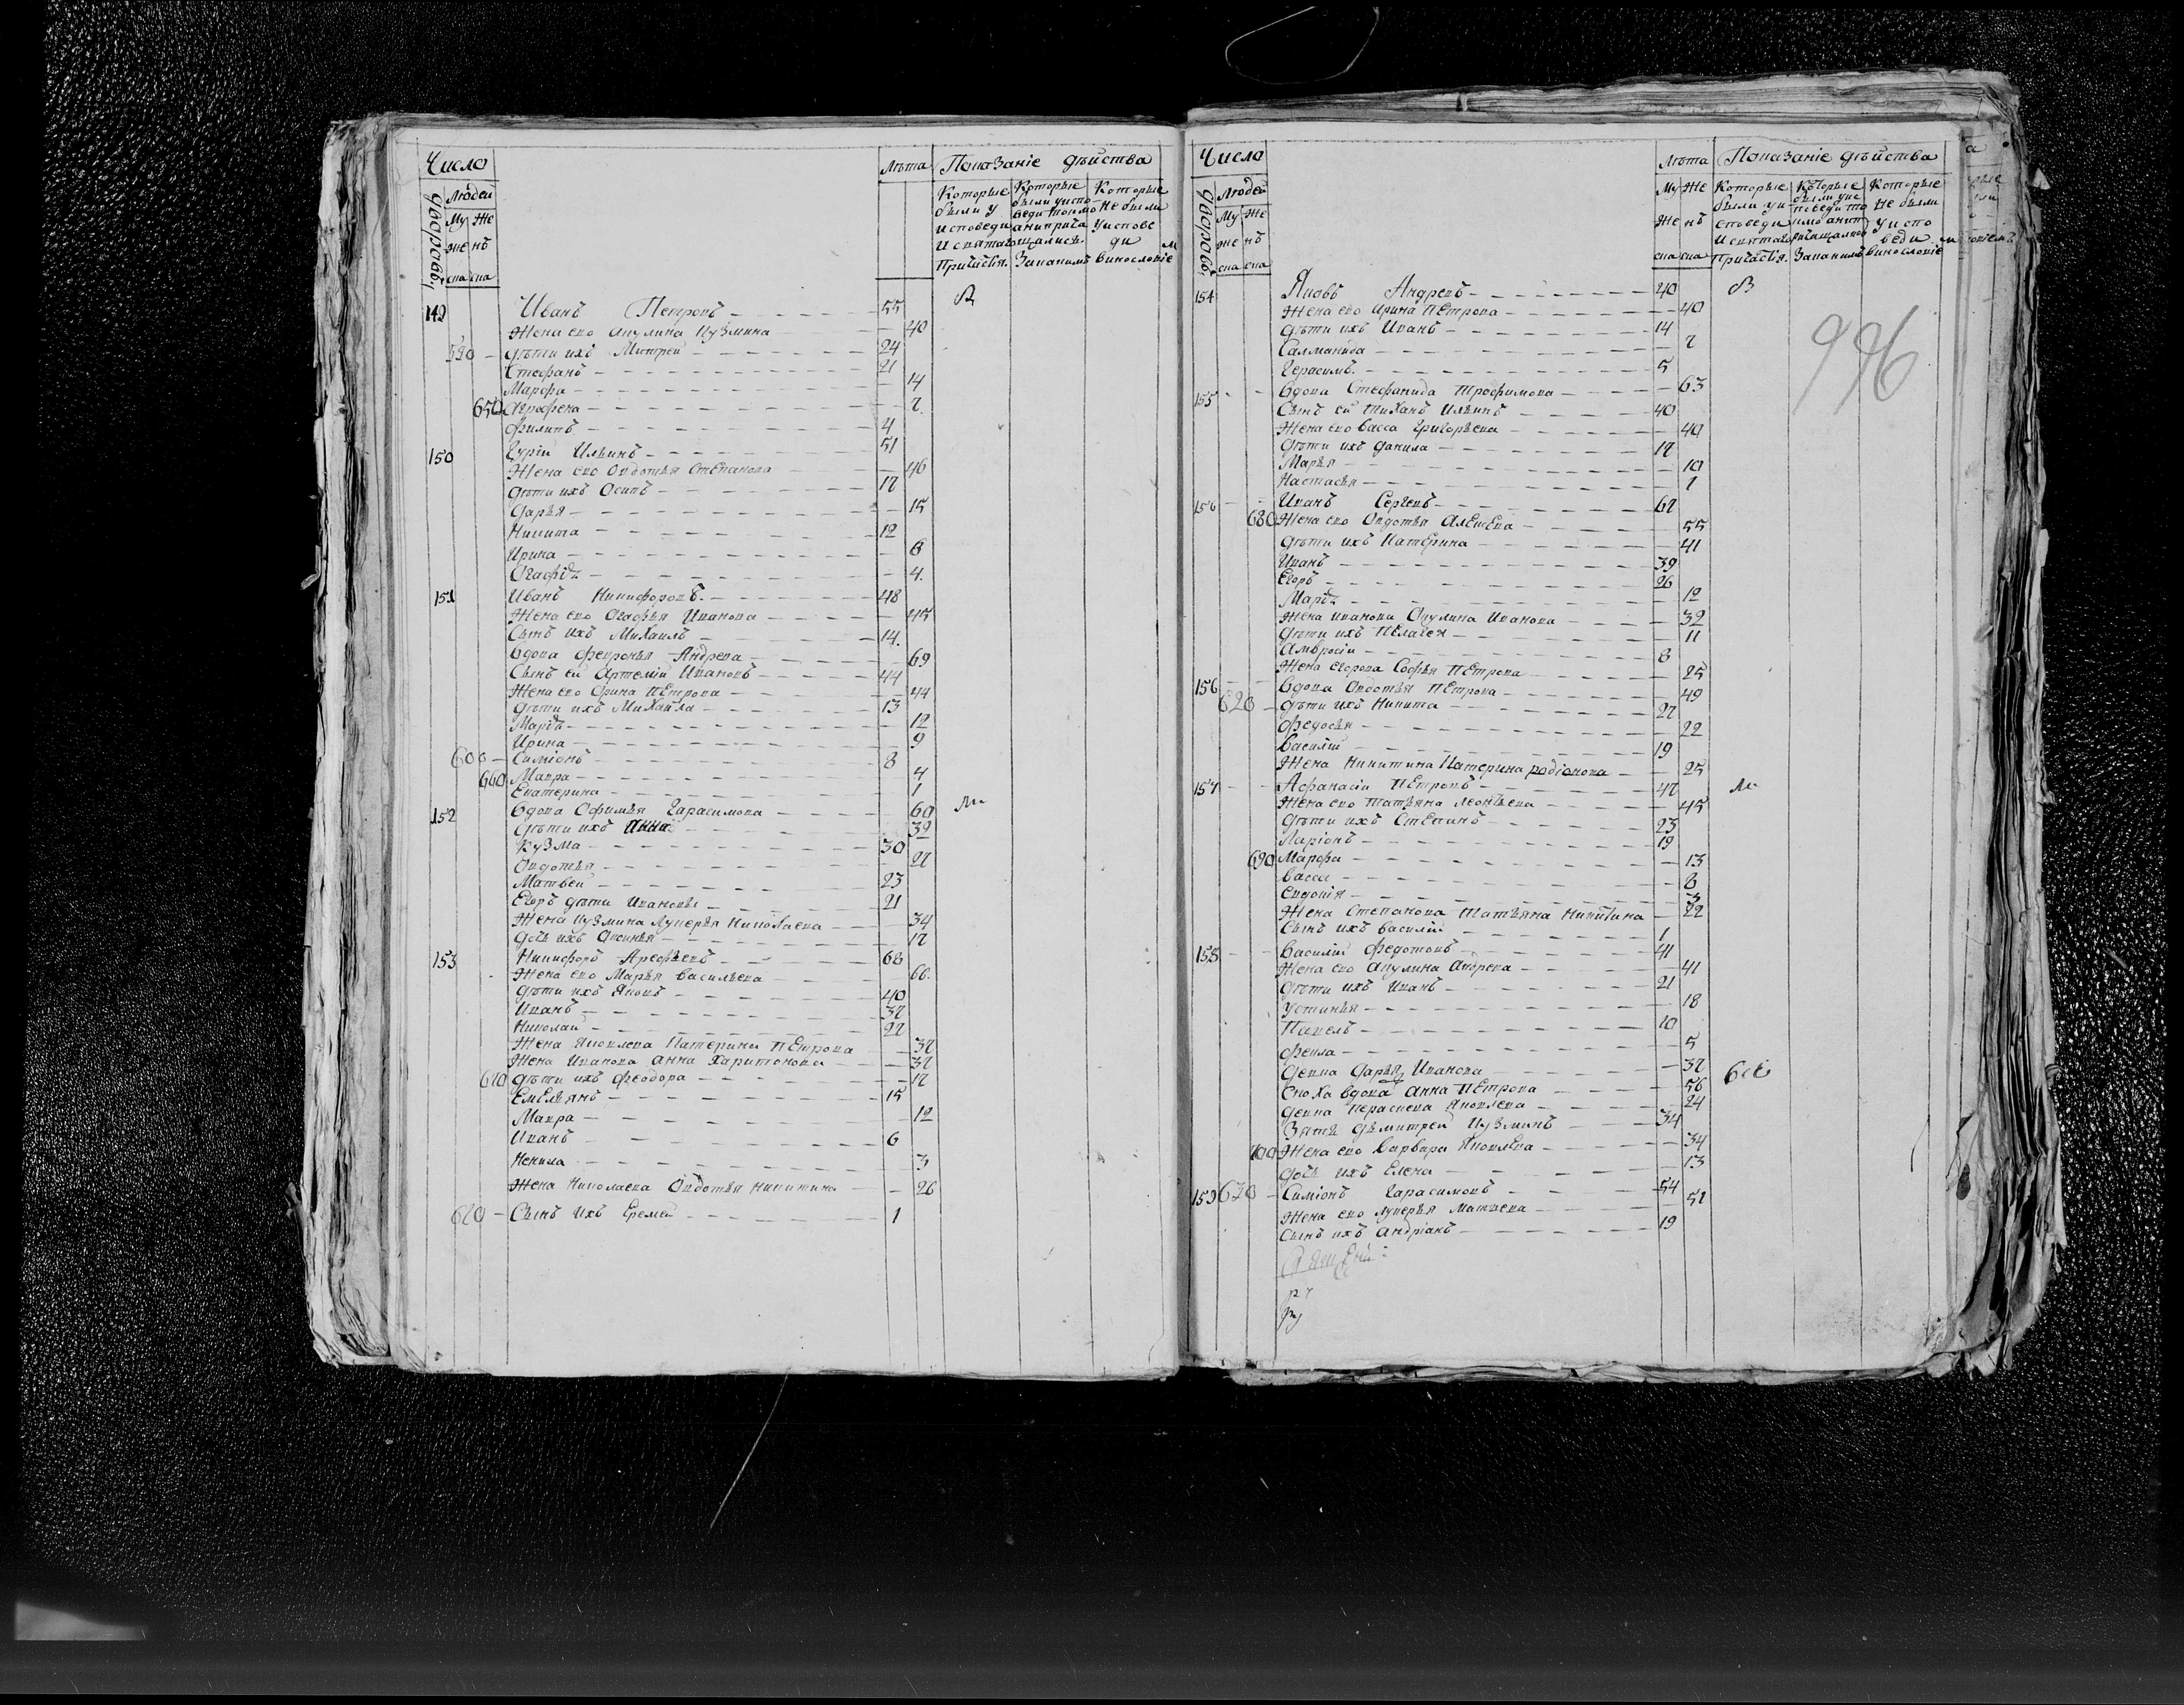 Число
Лѣта Показаніе дѣйства
дворовъ
Людей
Му Же
же нс
ска ска
Которые были у исповеди и святаго Причастія.
Которые были у испо веди токмо а не прича щались. За каким
Которые не были у испове ди
винословіе
149 Иванъ Петровъ 55
Жена его Акулина Кузмина 40
590 дѣти ихъ Митрей 24
Стефанъ 21
Марфа 14
650 Аграфена 7
Филипъ 4
150 Гурій Ильинъ 51
Жена его Овдотья Степанова 46
дѣти ихъ Осипъ 17
Дарья 15
Никита 12
Ирина 8
Огафія 4.
151 Иванъ Никифоровъ 48
Жена его Огафья Иванова 45
Сынъ ихъ Михаилъ 14.
Вдова Февронья Андрева 69
Сынъ ей Артемій Ивановъ 44
Жена его Орина Петрова 44
дѣти ихъ Михайла 13
Марія 12
Ирина 9
600 Симіонъ 8
660 Мавра 4
Екатерина 1
152 Вдова Офимья Гарасимова 60
дѣти ихъ Анна 32
Кузма 30
Овдотья 27
Матвей 23
Егоръ дѣти Ивановы 21
Жена Кузмина Лукерья Николаева 34
дочь ихъ Аксинья 17
153 Никифоръ Арефьевъ 68
Жена его Марья Васильева 66.
дѣти ихъ Яковъ 40
Иванъ 37
Николай 27
Жена Яковлева Катерина Петрова 37
Жена Иванова Анна Харитонова 37
670 дѣти ихъ Феодора 17
Емельянъ 15
Мавра 12
Иванъ 6
Ненила 3
Жена Николаева Овдотья Никитина 26
610 Сынъ ихъ Еремей 1
Число
Лѣта Показаніе дѣйства
дворовъ
Людей
Му Же
же нс
ска ска
Му Же
же нс
ска ска
Которые были у ис споведи и святаго Причастія.
Которые были у ис поведи то кмо а не при чащались За каким
Которые не были у испо веди
винословіе
154 Яковъ Андревъ 40
Жена его Ирина Петрова 40
дѣти ихъ Иванъ 14
Салманида 7
Герасимъ 5
996
155 Вдова Стефанида Трофимова 63
Сынъ ей Тиханъ Ильинъ 40
Жена его Васса Григорьева 40
дѣти ихъ Данила 17
Марья 10
Настасья 1
156 Иванъ Сергевъ 67
680 Жена его Овдотья Алешева 55
дѣти ихъ Катерина 41
Иванъ 39
Егоръ 26
Марія 12
Жена Иванова Окулина Иванова 32
дѣти ихъ Пелагея 11
Амвросій 8
Жена Егорова Софья Петрова 25
156 Вдова Овдотья Петрова 49
620 дѣти ихъ Никита 27
Федосья 22
Василій 19
Жена Никитина Катерина Родіонова 25
157 Афанасій Петровъ 47
Жена его Татьяна Леонтьева 45
дѣти ихъ Степанъ 23
Ларіонъ 19
690 Марфа 13
Васса 8
Евдокія 3
Жена Степанова Татьяна Никитина 22
Сынъ ихъ Василій 1
158 Василій Федотовъ 41
Жена его Акулина Андрева 41
дѣти ихъ Иванъ 21
Устинья 18
Павелъ 10
Фекла 5
девка Дарья Иванова 37
Сноха вдова Анна Петрова 56
девка Пераскева Яковлева 24
Зять Дѣмитрей Кузминъ 34
700 Жена его Варвара Яковлева 34
дочь ихъ Елена 13
159 630 Симіонъ Гарасимовъ 54
Жена его Лукерья Матвева 51
Сынъ ихъ Андріанъ 19